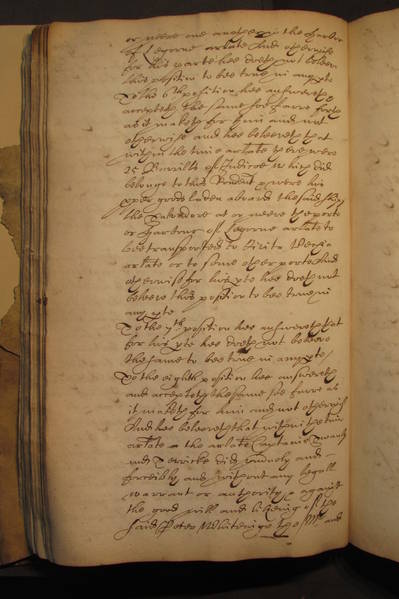 or neere one another in the harbor
of Legorne arlate And otherwise
for his parte hee doeth not beleeve
this position to bee true in any pte
To the 6th position hee answereth &
accepteth the same soe farre forth
as it maketh for him and not
otherwise and hee beleeveth that
within the time arlate there were
25 Barrills of Indicoe which did
belonge to this Rendent & were his
pper goods laden aboard the said ship
the Salvadore at or neere the porte
or harbour of Legorne arlate to
bee transported to
arlate or to some other porte And
otherwise for his pte hee doeth not
beleeve this position to bee true in
any pte
To the 7th position hee answereth that
for his pte hee doeth not beleeve
the same to bee true in any pte /
To the eighth position hee answereth
and accepteth the same soe farre as
it maketh for him and not otherwise
And hee beleeveth that within the time
arlate the arlate Captaine
and did and
forceibly and without any legall
warrant or authority & against
the good will and likeing of the
said Peter the Mr and